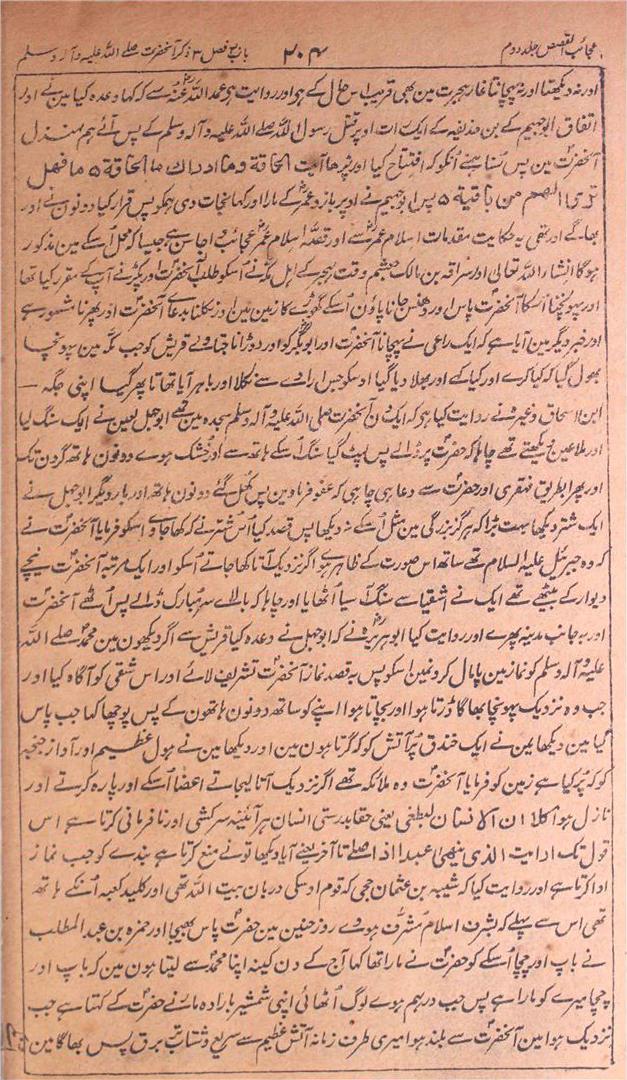 عجائب القصص جلد دوم ۲۰۴ باب فصل ۳ ذکر آنحضرت صلے اللہ علیہ وآلہ وسلم
اور نہ دیکھنا اور نہ پہچاننا غار ہجرت مین بھی قریب اس حال کے ہو اور روایت ہی عبد اللہ عنہ سے کہ کہا وعدہ کیا مین نے اور
اتفاق ابو جہیم کے بن حذیفہ کے ایک رات اوپر قتل رسول اللہ صلے اللہ علیہ وآلہ وسلم کے پس آئے ہم بمنزل
آنحضرت مین پس سنا ہمنے انکو کہ افتتاح کیا اور پڑھا آیت الحاقة وما ادراك ما الحاقة ٥ ما فهل
ترى لهم من باقية ٥ پس ابو جہیم نے اوپر بازو عمر کے مارا اور کہا نجات دی ہمکو پس قرار کیا دونون نے اور
بھاگے اور تھی یہ حکایت مقدمات اسلام عمر سے اور قصۂ اسلام عمر عجائب و اجاسن ہی جیسا کہ محل اسکے مین مذکور
ہوگا انشاء اللہ تعالی اور سراقہ بن مالک جعشم وقت ہجرت کے اہل مکہ نے اسکو طلب آنحضرت اور پکڑنے آپ کے مقرر کیا تھا
اور پہونچنا اسکا آنحضرت پاس اور دھنس جانا پاؤن اسکے گھوڑے کا زمین مین اور نکلنا بدعائے آنحضرت اور پھرنا مشہور ہے
اور خبر دیگر مین آیا ہے کہ ایک راعی نے پہچانا آنحضرت اور ابوبکر کو اور دوڑا تا جتاوے قریش کو جب مکہ مین پہونچا
بھول گیا کہ کیا کرے اور کیا کہے اور بھلا دیا گیا اوسکو جس ارادے سے نکلا اور باہر آیا تھا تا پھر گیا اپنی جگہ —
ابن اسحاق وغیرہ نے روایت کیا ہی کہ ایک دن آنحضرت صلی اللہ علیہ وآلہ وسلم سجدہ مین تھے ابو جہل لعین نے ایک سنگ لیا
اور ملاعین دیکھتے تھے چاہا کہ حضرت پر ڈالے پس لپٹ گیا سنگ اسکے ہاتھ سے اور خشک ہوے دونون ہاتھ گردن تک
اور پھرا بطریق قہقری اور حضرت سے دعا ہی چاہی کہ عفو فرماوین پس کھل گئے دونون ہاتھ اور بار دیگر ابو جہل نے
ایک شتر دیکھا بہت بڑا کہ ہرگز بزرگی مین مثل اسکے نہ دیکھا پس قصد کیا اس شتر نے کہ کھا جاوے اسکو فرمایا آنحضرت نے
کہ وہ جبرئیل علیہ السلام تھے ساتھ اس صورت کے ظاہر ہوئے اگر نزدیک آتا کھا جاتے اسکو اور ایک مرتبہ آنحضرت نیچے
دیوار کے بیٹھے تھے ایک نے اشقیا سے سنگ آسیا اٹھایا اور چاہا کہ بالاے سر مبارک ڈالے پس اٹھے آنحضرت
اور بہ جانب مدینہ پھرے اور روایت کیا ابو ہریرہ نے کہ ابو جہل نے وعدہ کیا قریش سے اگر دیکھون مین محمد صلے اللہ
علیہ وآلہ وسلم کو نماز مین پامال کرون مین اسکو پس بہ قصد نماز آنحضرت تشریف لائے اور اس شقی کو آگاہ کیا اور
جب وہ نزدیک پہونچا بھاگا ڈرتا ہوا اور بچاتا ہوا اپنے کو ساتھ دونون ہاتھون کے پس پوچھا کہا جب پاس
گیا مین دیکھا مین نے ایک خندق پر آتش کو کہ گرتا ہون مین اور دیکھا مین نے ہول عظیم اور آواز جنجہ
کو کہ پر کیا ہے زمین کو فرمایا آنحضرت وہ ملائکہ تھے اگر نزدیک آتا لیجاتے اعضا اسکے اور پارہ کرتے اور
نازل ہوا کلا ان الانسان ليطغى یعنی حقا بدرستی انسان ہر آئینہ سرکشی اور نافرمانی کرتا ہے اس
قول تک ارايت الذي ينهى عبدا اذا صلے تا آخر یعنے آیا دیکھا تو نے منع کرتا ہے بندے کو جب نماز
ادا کرتا ہے اور روایت کیا کہ شیبہ بن عثمان حجی کہ قوم اوسکی دربان بیت اللہ تھی اور کلید کعبہ انکے ہاتھ
تھی اس سے پہلے کہ بشرف اسلام مشرف ہووے روز حنین مین حضرت پاس بھیجا اور حمزہ بن عبد المطلب
نے باپ اور چچا اسکے کو حضرت نے مارا تھا کہا آج کے دن کینہ اپنا محمد سے لیتا ہون مین کہ باپ اور
چچا میرے کو مارا ہے پس جب درہم ہوے لوگ اٹھائی اپنی شمشیر با ارادہ مارنے حضرت کے کہتا ہے جب
نزدیک ہوا مین آنحضرت سے بلند ہوا میری طرف زبانہ آتش عظیم سے سریع و شتاب تر برق پس بھاگا مین